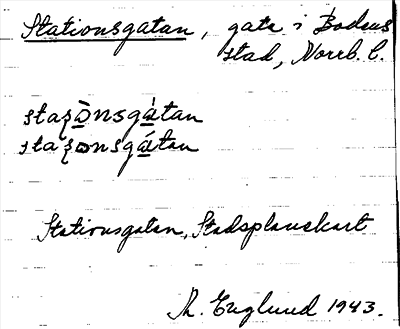 Stationsgatan, gata i Bodens
stad, Norrb. l.
staʒɷ̀nsgàtan
staʒɷnsgátan
Stationsgatan, Stadsplanekart
Th. Englund 1943.